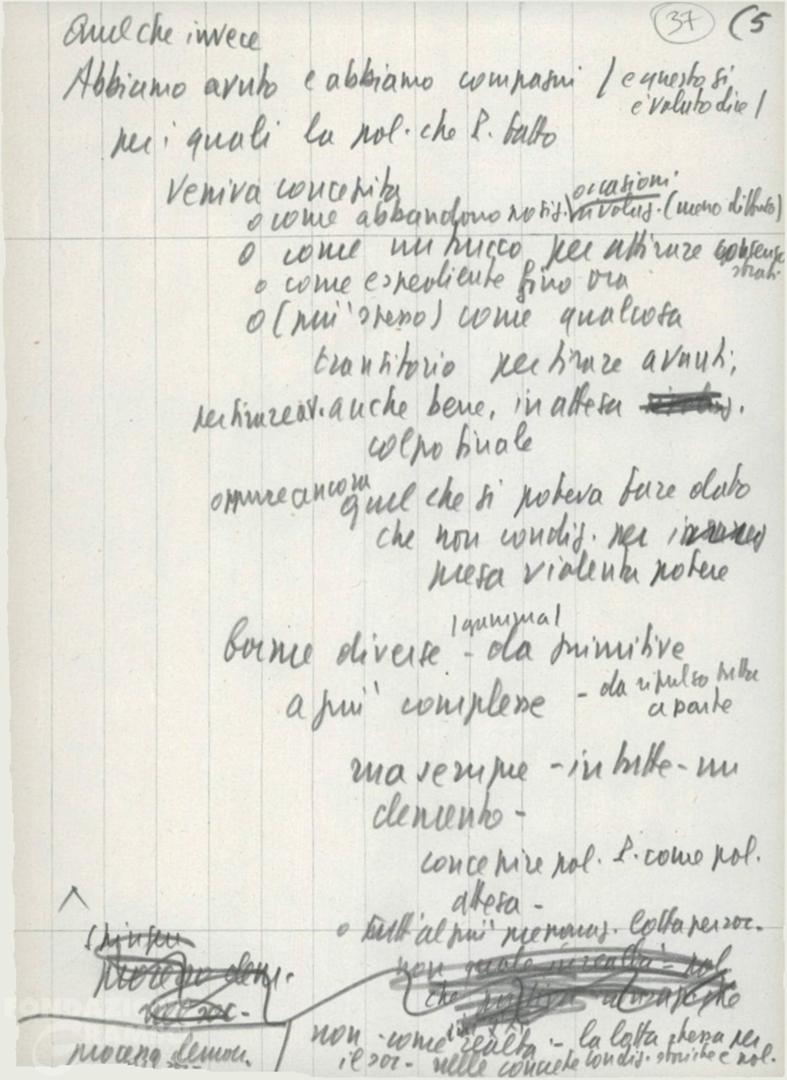 37 (5
Quel che invece
Abbiamo avuto e abbiamo compagni / e questo si
è voluto dire /
per i quali la pol. che P. fatto
veniva concepita
o come abbandono posiz. rivoluz. (meno diffuso)
occasioni
o come un trucco per attirare consensi
strati
o come espediente fino ora
o (più spesso) come qualcosa
transitorio per tirare avanti,
per tirare av. anche bene, in attesa
colpo finale
oppure ancora quel che si poteva fare dato
che non condiz. per
presa violenta potere
/gamma/
Forme diverse - da primitive
a più complesse - da ripulsa tutta
a parte
ma sempre - in tutte - un
elemento -
concepire pol. P. come pol.
attesa -
o tutt'al più preparaz. lotta per soc.
non quale in realtà - pol.
che
non - come realtà - la lotta stessa per
il soc - nelle concrete condiz. storiche e pol.